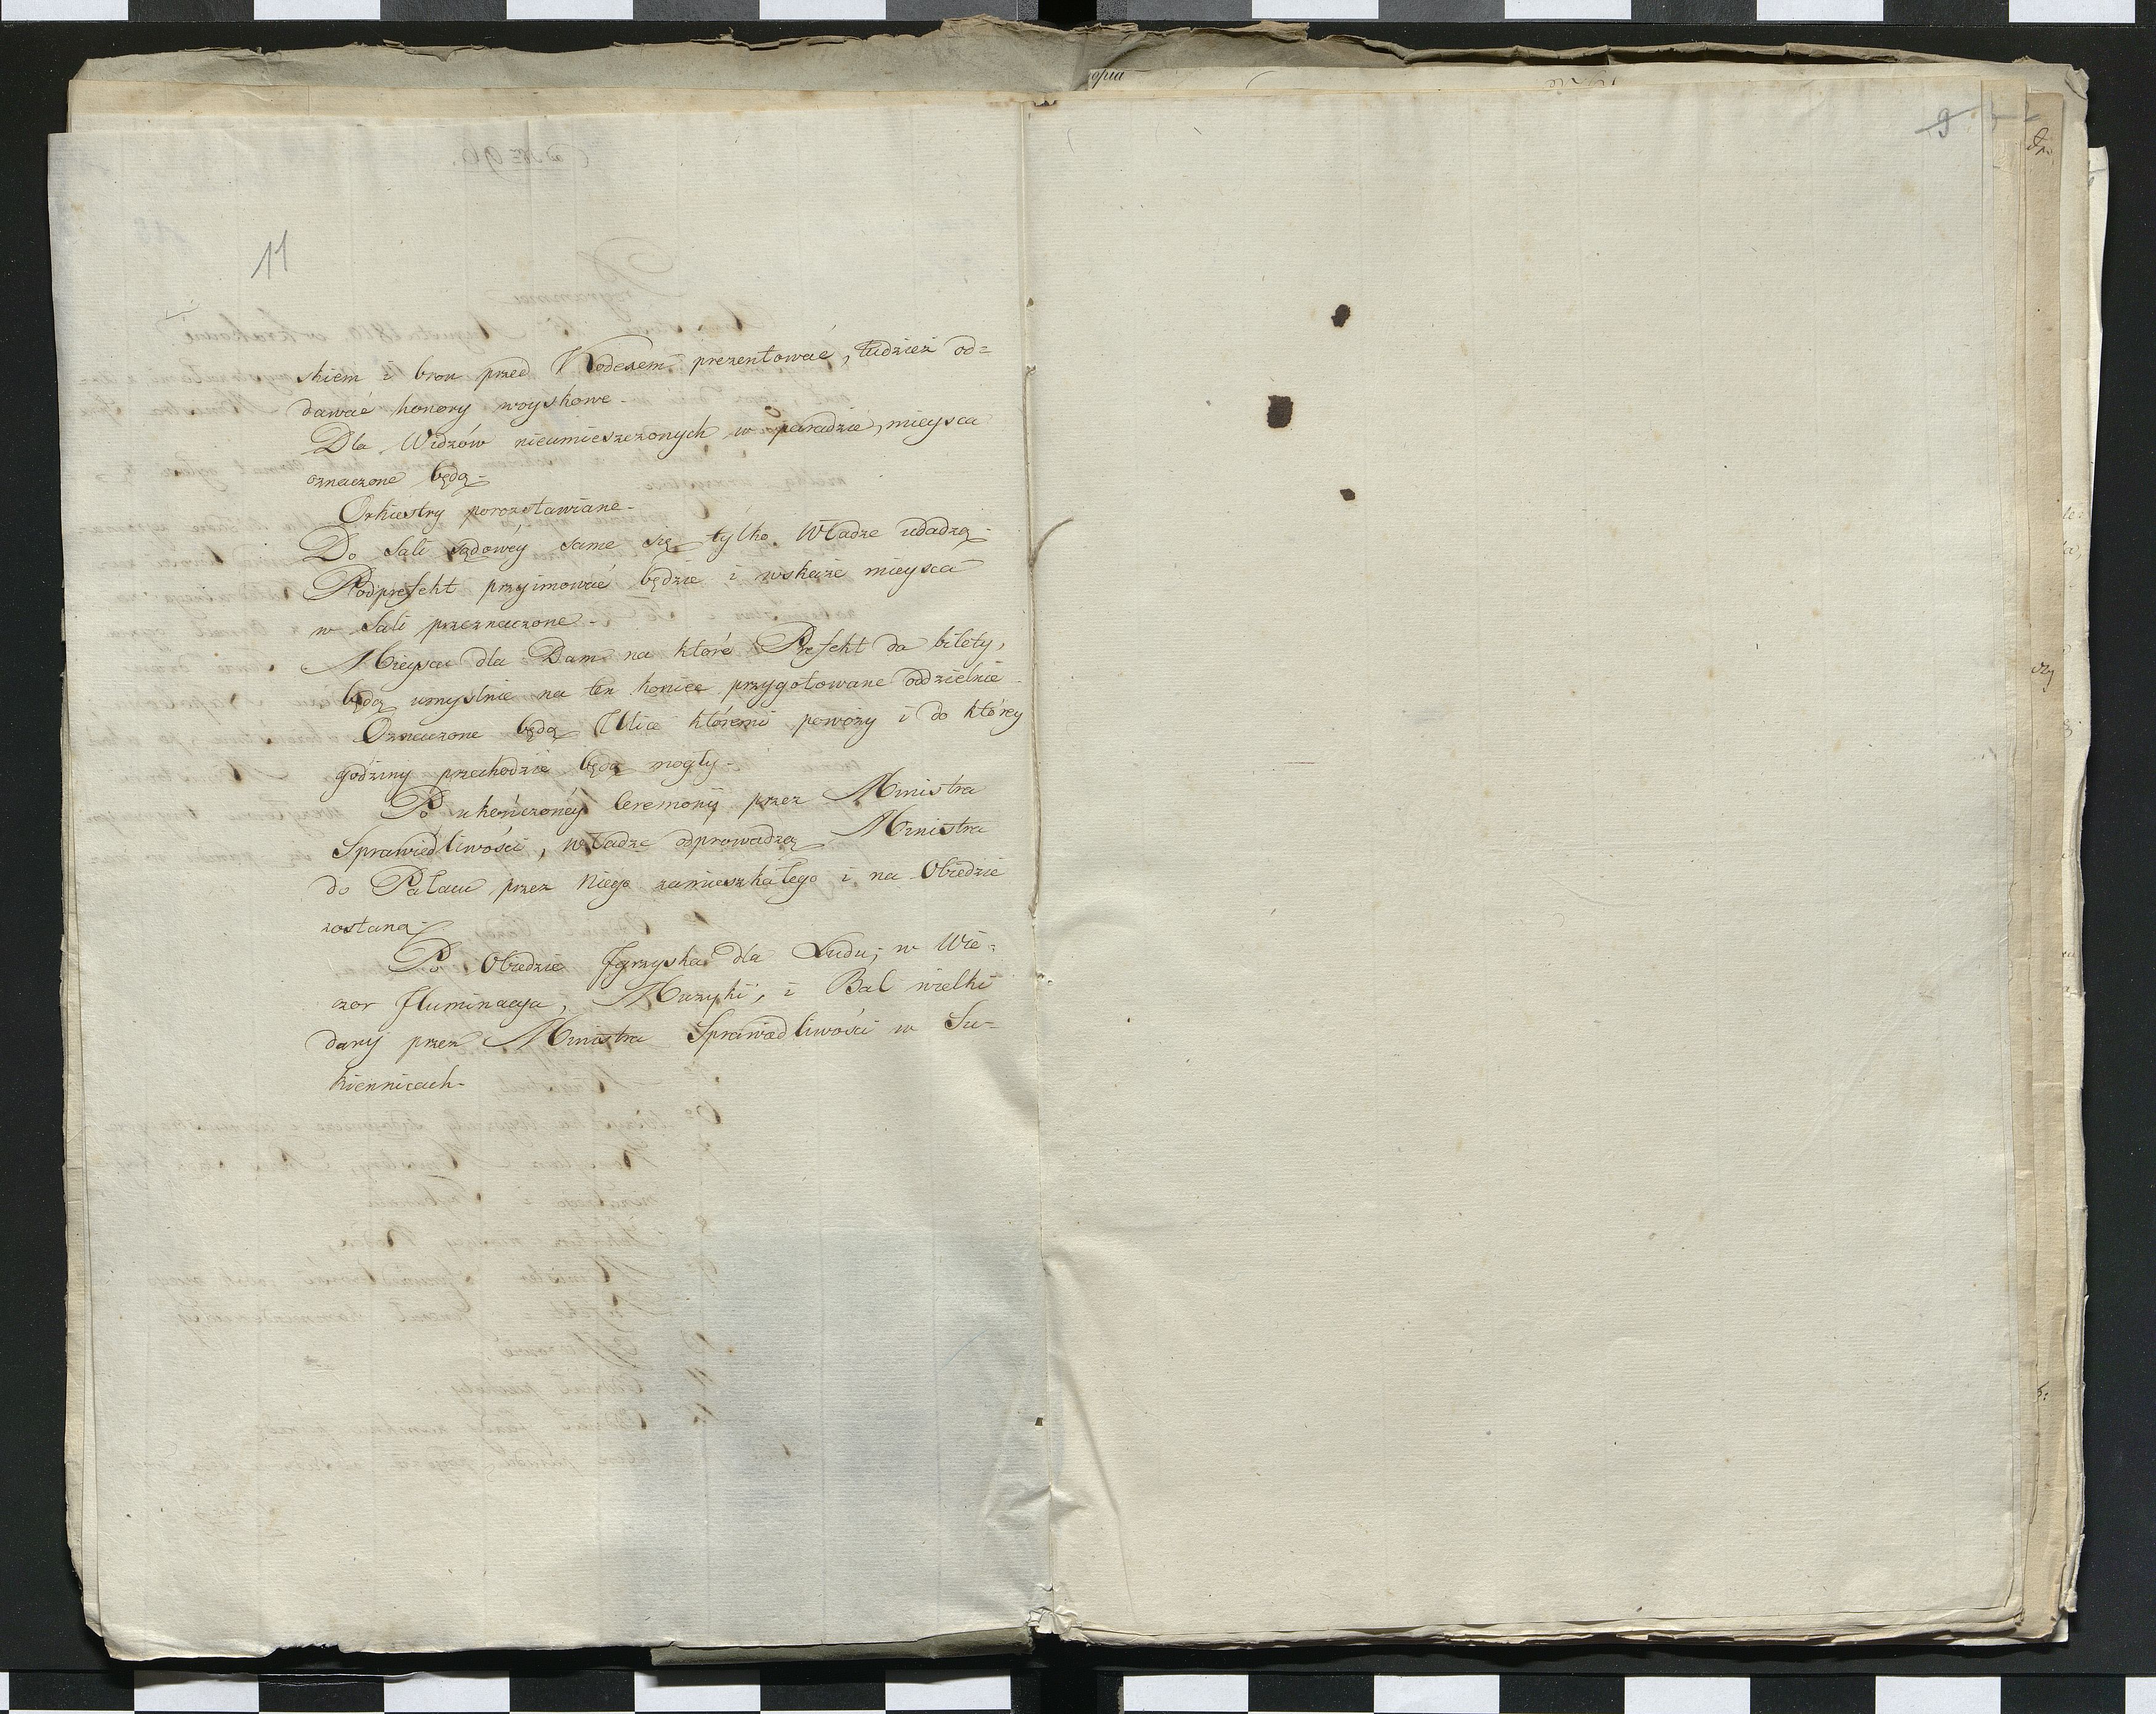 11
skiem i bron przed Kodexem prezentować, tudzież od=
dawać honory woyskowe.
Dla Widzów nieumieszczonych w paradzie, mieysca
oznaczone będą.
Orkiestry porozstawiane.
Do Sali sądowey same się tylko Władze udadzą.
Podprefekt przyimować będzie i wskaże mieysca
w Sali przeznaczone.
Mieysca dla Dam na które Prefekt da bilety,
będą umyslnie na ten koniec przygotowane oddzielnie.
Oznaczone będą Ulice któremi powozy i do którey
godziny przechodzić będą mogły.
Po ukończoney Ceremonij przez Ministra
Sprawiedliwości, władze odprowadzą Ministra
do Pałacu przez Niego zamieszkałego i na Obiedzie
zostaną.
Po Obiedzie Jgrzyska dla Ludu, w Wie=
czor Jluminacya, Muzyki, i Bal wielki
dany przez Ministra Sprawiedliwości w Su=
kiennicach.
9
opia